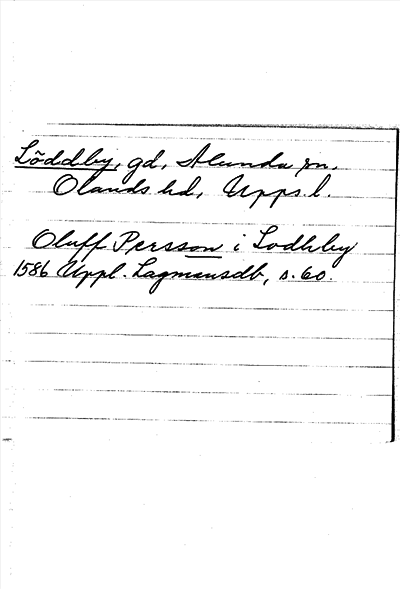 Löddby, gd, Alunda sn,
Olands hd, Upps. l.
Oluff Persson i Lodhby
1586 Uppl. Lagmansdb, s. 60.